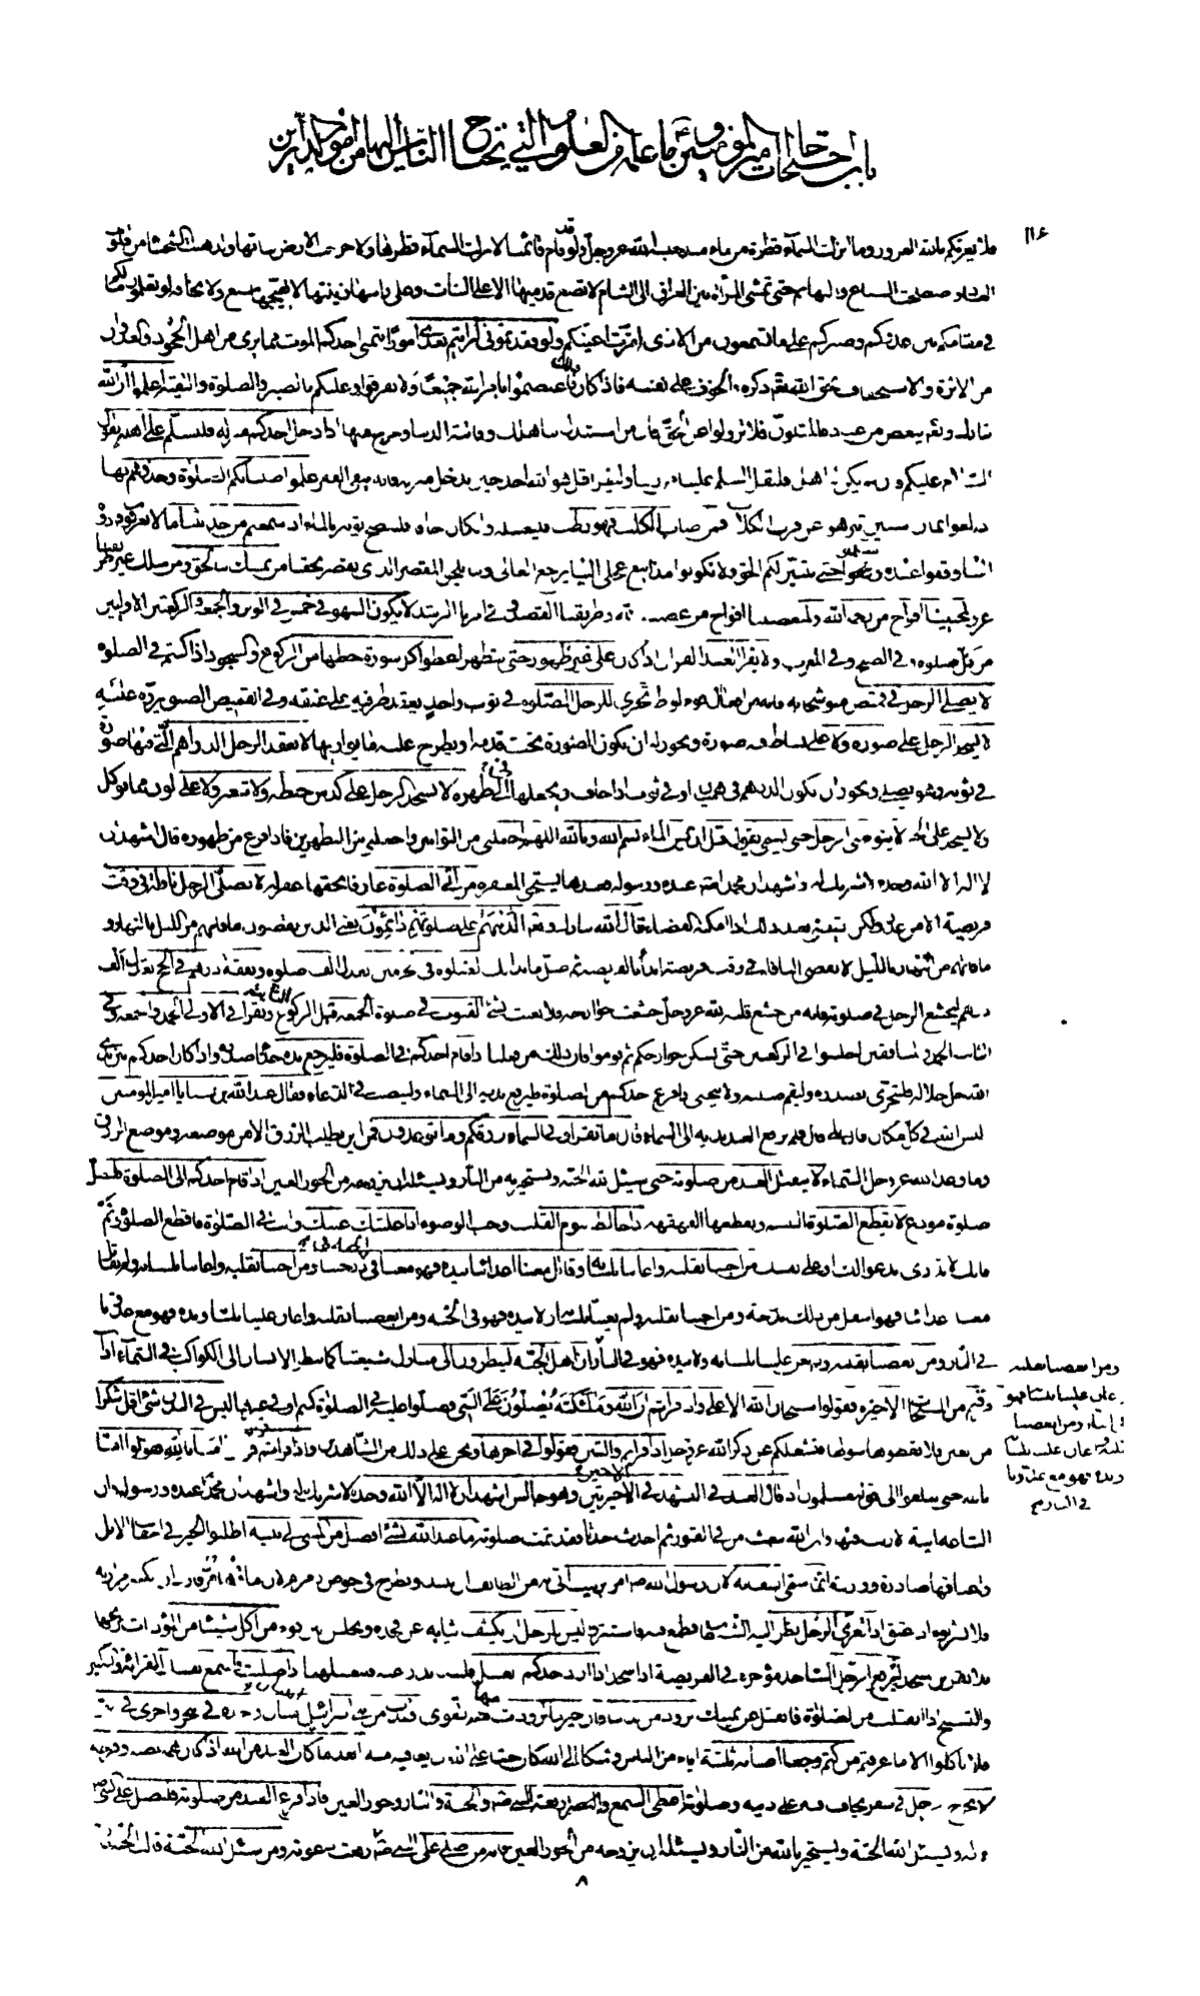 باب احتجاجات امير المؤمنين وما علمه من العلوم التي يحتاج الناس اليها من امور الدين
١١٤
فلا يغرنكم بالله الغرور وما نزلت السمآء قطرة من ماء منذ حبسه الله عز وجل ولو قد قام قائمنا لانزلت السمآء قطرها ولاخرجت الارض نباتها ولذهبت الشحناء من قلوب
العباد واصطلحت السباع والبهايم حتى تمشي المرأة بين العراق الى الشام لا تضع قدميها الا على النبات وعلى رأسها زينتها لا يهيجها سبع ولا تخافه لو تعلمون ما لكم
في مقامكم بين عدوكم وصبركم على ما تسمعون من الاذى لقرت اعينكم ولو فقدتموني لرايتم بعدي امورا يتمنى احدكم الموت مما يرى من اهل الجحود والعدوان
من الاثرة والاستخفاف بحق الله تعالى ذكره والخوف على نفسه فاذا كان ذلك فاعتصموا بحبل الله جميعا ولا تفرقوا وعليكم بالصبر والصلوة والتقية اعلموا ان الله
تبارك وتعالى يبغض من عباده المتلون فلا تزولوا عن الحق فان من استبدل بنا هلك وفاتته الدنيا وخرج منها اذا دخل احدكم منزله فليسلم على اهله يقول
السلام عليكم فان لم يكن له اهل فليقل السلم علينا من ربنا وليقرأ قل هو الله احد حين يدخل منزله فانه ينفي الفقر علموا صبيانكم الصلوة وخذوهم بها
اذا بلغوا ثمان سنين تنزهوا عن قرب الكلاب فمن اصاب الكلب وهو رطب فليغسله وان كان جافا فلينضح ثوبه بالماء اذا سمعتم من حديثنا ما لا تعرفون فردوه
الينا وقفوا عنده وسلموا حتى يتبين لكم الحق ولا تكونوا مذاييع عجلى الينا يرجع الغالي وبنا يلحق المقصر الذي يقصر بحقنا من تمسك بنا لحق ومن سلك غير طريقتنا
غرق لمحبينا افواج من رحمة الله ولمبغضينا افواج من غضب الله وطريقنا القصد وفي امرنا الرشد لا يكون السهو في خمس في الوتر والجمعة والركعتين الاوليين
من كل صلوة وفي الصبح وفي المغرب ولا يقرأ العبد القران اذا كان على غير طهور حتى يتطهر اعطوا كل سورة حظها من الركوع والسجود اذا كنتم في الصلوة
لا يصلي الرجل في قميص متوشحا به فانه من افعال قوم لوط تجزي للرجل الصلوة في ثوب واحد يعقد طرفيه على عنقه وفي القميص الصفيق يزره عليه
لا يسجد الرجل على صورة ولا على بساط فيه صورة ويجوز له ان يكون الصورة تحت قدميه او يطرح عليه ما يواريها لا يعقد الرجل الدراهم التي فيها صورة
في ثوبه وهو يصلي ويجوز ان يكون الدراهم في هميان او في ثوب اذا خاف ويجعلها الى ظهره لا يسجد الرجل على كدس حنطة ولا شعير ولا على لون مما يؤكل
ولا يسجد على الخبز لا يتوضى الرجل حتى يسمي يقول قبل ان يمس الماء بسم الله وبالله اللهم اجعلني من التوابين واجعلني من المتطهرين فاذا فرغ من طهوره قال اشهد ان
لا اله الا الله وحده لا شريك له واشهد ان محمدا عبده ورسوله فعندها يستحق المغفرة من اتى الصلوة عارفا بحقها غفر له لا يصلي الرجل نافلة في وقت
فريضة الا من عذر ولكن يقضي بعد ذلك اذا امكنه القضاء قال الله تبارك وتعالى الذين هم على صلوتهم دائمون يعني الذين يقضون ما فاتهم من الليل بالنهار و
ما فاتهم من النهار بالليل لا تقضى النافلة في وقت فريضة ابدأ بالفريضة ثم صل ما بدا لك الصلوة في الحرمين تعدل الف صلوة ونفقة درهم في الحج تعدل الف
درهم ليخشع الرجل في صلوته فانه من خشع قلبه لله عز وجل خشعت جوارحه فلا يعبث بشئ القنوت في صلوة الجمعة قبل الركوع الثانية ويقرأ في الاولى الحمد والجمعة وفي
الثانية الحمد والمنافقين اجلسوا في الركعتين حتى تسكن جوارحكم ثم قوموا فان ذلك من فعلنا اذا قام احدكم في الصلوة فليرجع يده حذاء صدره واذا كان احدكم بين يدي
الله جل جلاله فليتحرى بصدره وليقم صلبه ولا ينحني اذا فرغ احدكم من الصلوة فليرفع يديه الى السماء ولينصب في الدعاء فقال عبد الله بن سبا يا امير المؤمنين
اليس الله في كل مكان قال بلى قال فلم يرفع العبد يديه الى السماء قال اما تقرأ وفي السماء رزقكم وما توعدون فمن اين يطلب الرزق الا من موضعه وموضع الرزق
وما وعد الله عز وجل السماء لا ينفتل العبد من صلوته حتى يسئل الله الجنة ويستجير به من النار ويسئله ان يزوجه من الحور العين اذا قام احدكم الى الصلوة فليصل
صلوة مودع لا يقطع الصلوة التبسم ويقطعها القهقهة اذا خالط النوم القلب وجب الوضوء اذا غلبتك عينك وانت في الصلوة فاقطع الصلوة ونم
فانك لا تدري تدعو لك او على نفسك من احبنا بقلبه واعاننا بلسانه وقاتل معنا اعدائنا بيده فهو معنا في الجنة في درجتنا ومن احبنا بقلبه واعاننا بلسانه ولم يقاتل
معنا اعدائنا فهو اسفل من ذلك بدرجة ومن احبنا بقلبه ولم يعنا بلسانه ولا بيده فهو في الجنة ومن ابغضنا بقلبه واعان علينا بلسانه ويده فهو مع عدونا
في النار ومن ابغضنا بقلبه ولم يعن علينا بلسانه ولا بيده فهو في النار ان اهل الجنة لينظرون الى منازل شيعتنا كما ينظر الانسان الى الكواكب في السمآء اذا
ومن ابغضنا بقلبه
واعان علينا بلسانه فهو
في النار ومن ابغضنا
بقلبه واعان علينا بلسانه
ويده فهو مع عدونا
في النار
قرأتم من المسبحات الاخيرة فقولوا سبحان الله الاعلى واذا قرأتم ان الله وملئكته يصلون على النبي فصلوا عليه في الصلوة كنتم او في غيرها ليس في البدن شئ اقل شكرا
من العين فلا تعطوها سؤلها فتشغلكم عن ذكر الله عز وجل اذا قرأتم والتين فقولوا في اخرها ونحن على ذلك من الشاهدين واذا قرأتم قولوا امنا بالله فقولوا امنا
بالله حتى تبلغوا الى قوله مسلمون اذا قال العبد في التشهد في الاخيرتين وهو جالس اشهد ان لا اله الا الله وحده لا شريك له واشهد ان محمدا عبده ورسوله وان
الساعة اتية لا ريب فيها وان الله يبعث من في القبور ثم احدث حدثا فقد تمت صلوته ما عبد الله بشئ افضل من المشي الى بيته اطلبوا الخير في اخفاف الابل
واعناقها صادرة وواردة انما سمي السقاية لان رسول الله ص امر بزبيب اتي به من الطائف ان ينبذ ويطرح في حوض زمزم لان ماءها مر فاراد ان يكسر مرارته
فلا تشربوا اذا عتق اذا تعرى الرجل نظر اليه الشيطان فطمع فيه فاستتروا ليس للرجل ان يكشف ثيابه عن فخذه ويجلس بين قوم من اكل شيئا من المؤذيات بريحها
فلا يقربن المسجد ليرفع الرجل الساجد مؤخره في الفريضة اذا سجد اذا اراد احدكم الغسل فليبدء بذراعيه فليغسلهما اذا صليت فاسمع نفسك القراءة والتكبير
والتسبيح اذا انفتلت من الصلوة فانفتل عن يمينك تزود من الدنيا فان خير ما تزودت منها التقوى فقدت من بني اسرائيل امتان واحدة في البحر واخرى في البر
فلا تأكلوا الا ما عرفتم من كتم وجعا اصابه ثلثة ايام من الناس وشكا الى الله كان حقا على الله ان يعافيه منه ابعد ما كان العبد من الله اذا كان همه بطنه وفرجه
لا يخرج الرجل في سفر يخاف فيه على دينه وصلوته اعطي السمع اربعة النبي ص والجنة والنار وحور العين فاذا فرغ العبد من صلوته فليصل على النبي ص
واله وليسئل الله الجنة وليستجير بالله من النار ويسئله ان يزوجه من الحور العين فانه من صلى على النبي ص رفعت دعوته ومن سئل الله الجنة قالت الجنة
٨